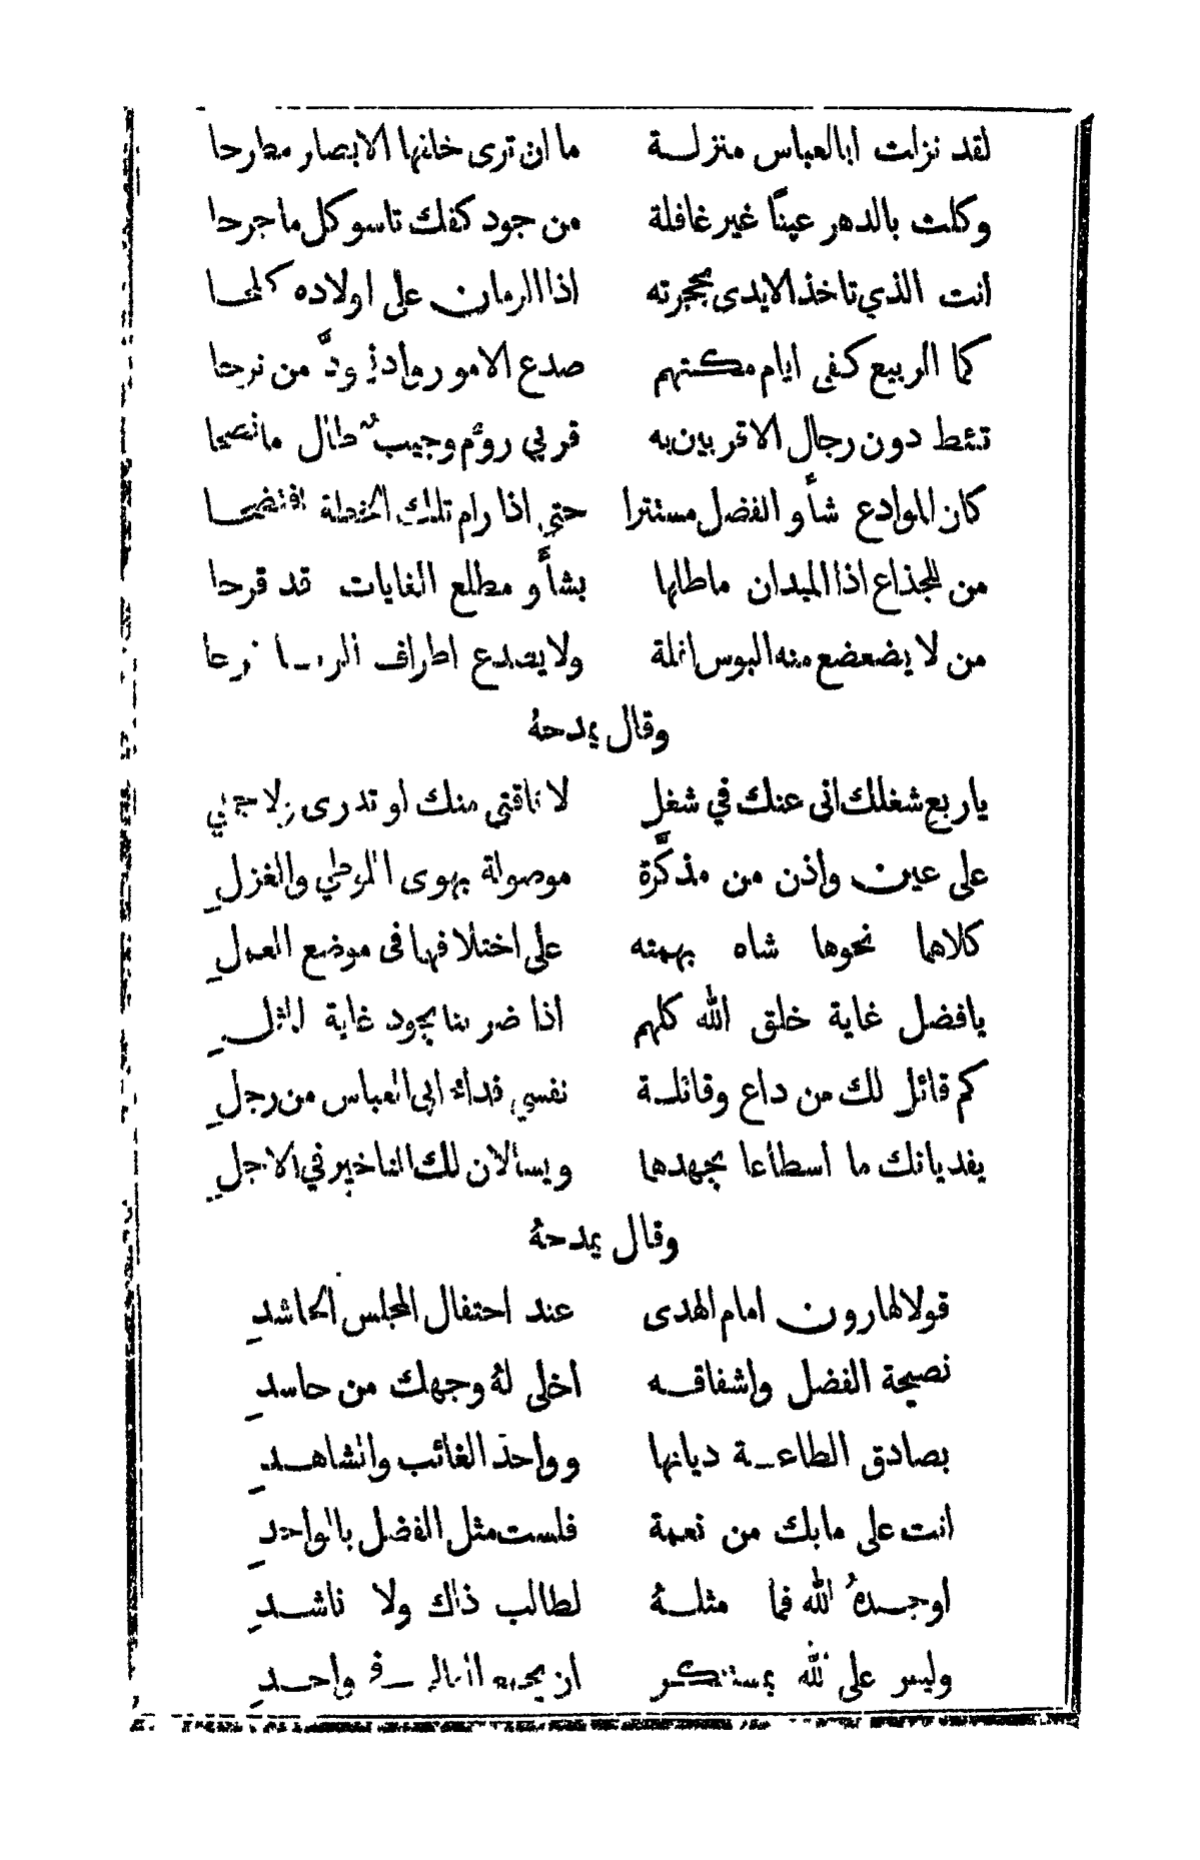 لقد نزلت ابا العباس منزلة ما ان ترى خلفها الابصار مطرحا
وكلت بالدهر عينًا غير غافلة من جود كفك تاسو كل ما جرحا
انت الذي تاخذ الايدى بحجزته اذا الزمان على اولاده كلحا
كما الربيع كفى ايام مكتهم صدع الامور وادنى ودَّ من نزحا
تئط دون رجال الاقربين به قربي رؤم وجيب طال ما نصحا
كان الموادع شأو الفضل مستترا حتى اذا رام تلك الخطة افتضحا
من للجذاع اذا الميدان ماطلها بشأو مطلع الغايات قد قرحا
من لا يضعضع منه البوس انملة ولا يصدع اطراف
وقال يمدحهُ
يا ربع شغلك انى عنك في شغل لا ناقتى منك لو تدرى ولا جملي
على عين واذن من مذكَّرة موصولة بهوى اللوطي والغزلِ
كلاهما نحوها شاه بهمته على اختلافها فى موضع العملِ
يافضل غاية خلق الله كلهم اذا ضربنا بجود غاية المثلِ
كم قائل لك من داع وقائلـة نفسي فداك ابى العباس من رجلِ
يفديانك ما اسطاعا بجهدها ويسالان لك التاخير في الاجلِ
وقال يمدحهُ
قولا لهارون امام الهدى عند احتفال المجلس الحاشدِ
نصيحة الفضل واشفاقـه اخلى لهُ وجهك من حاسدِ
بصادق الطاعـة ديانها وواحد الغائب والشاهـدِ
انت على مابك من نعمة فلست مثل الفضل بالواجدِ
اوجـدهُ الله فما مثلـهُ لطالب ذاك ولا ناشـدِ
وليس على لله بمستنكـر ان يجمع العالم فى واحـدِ